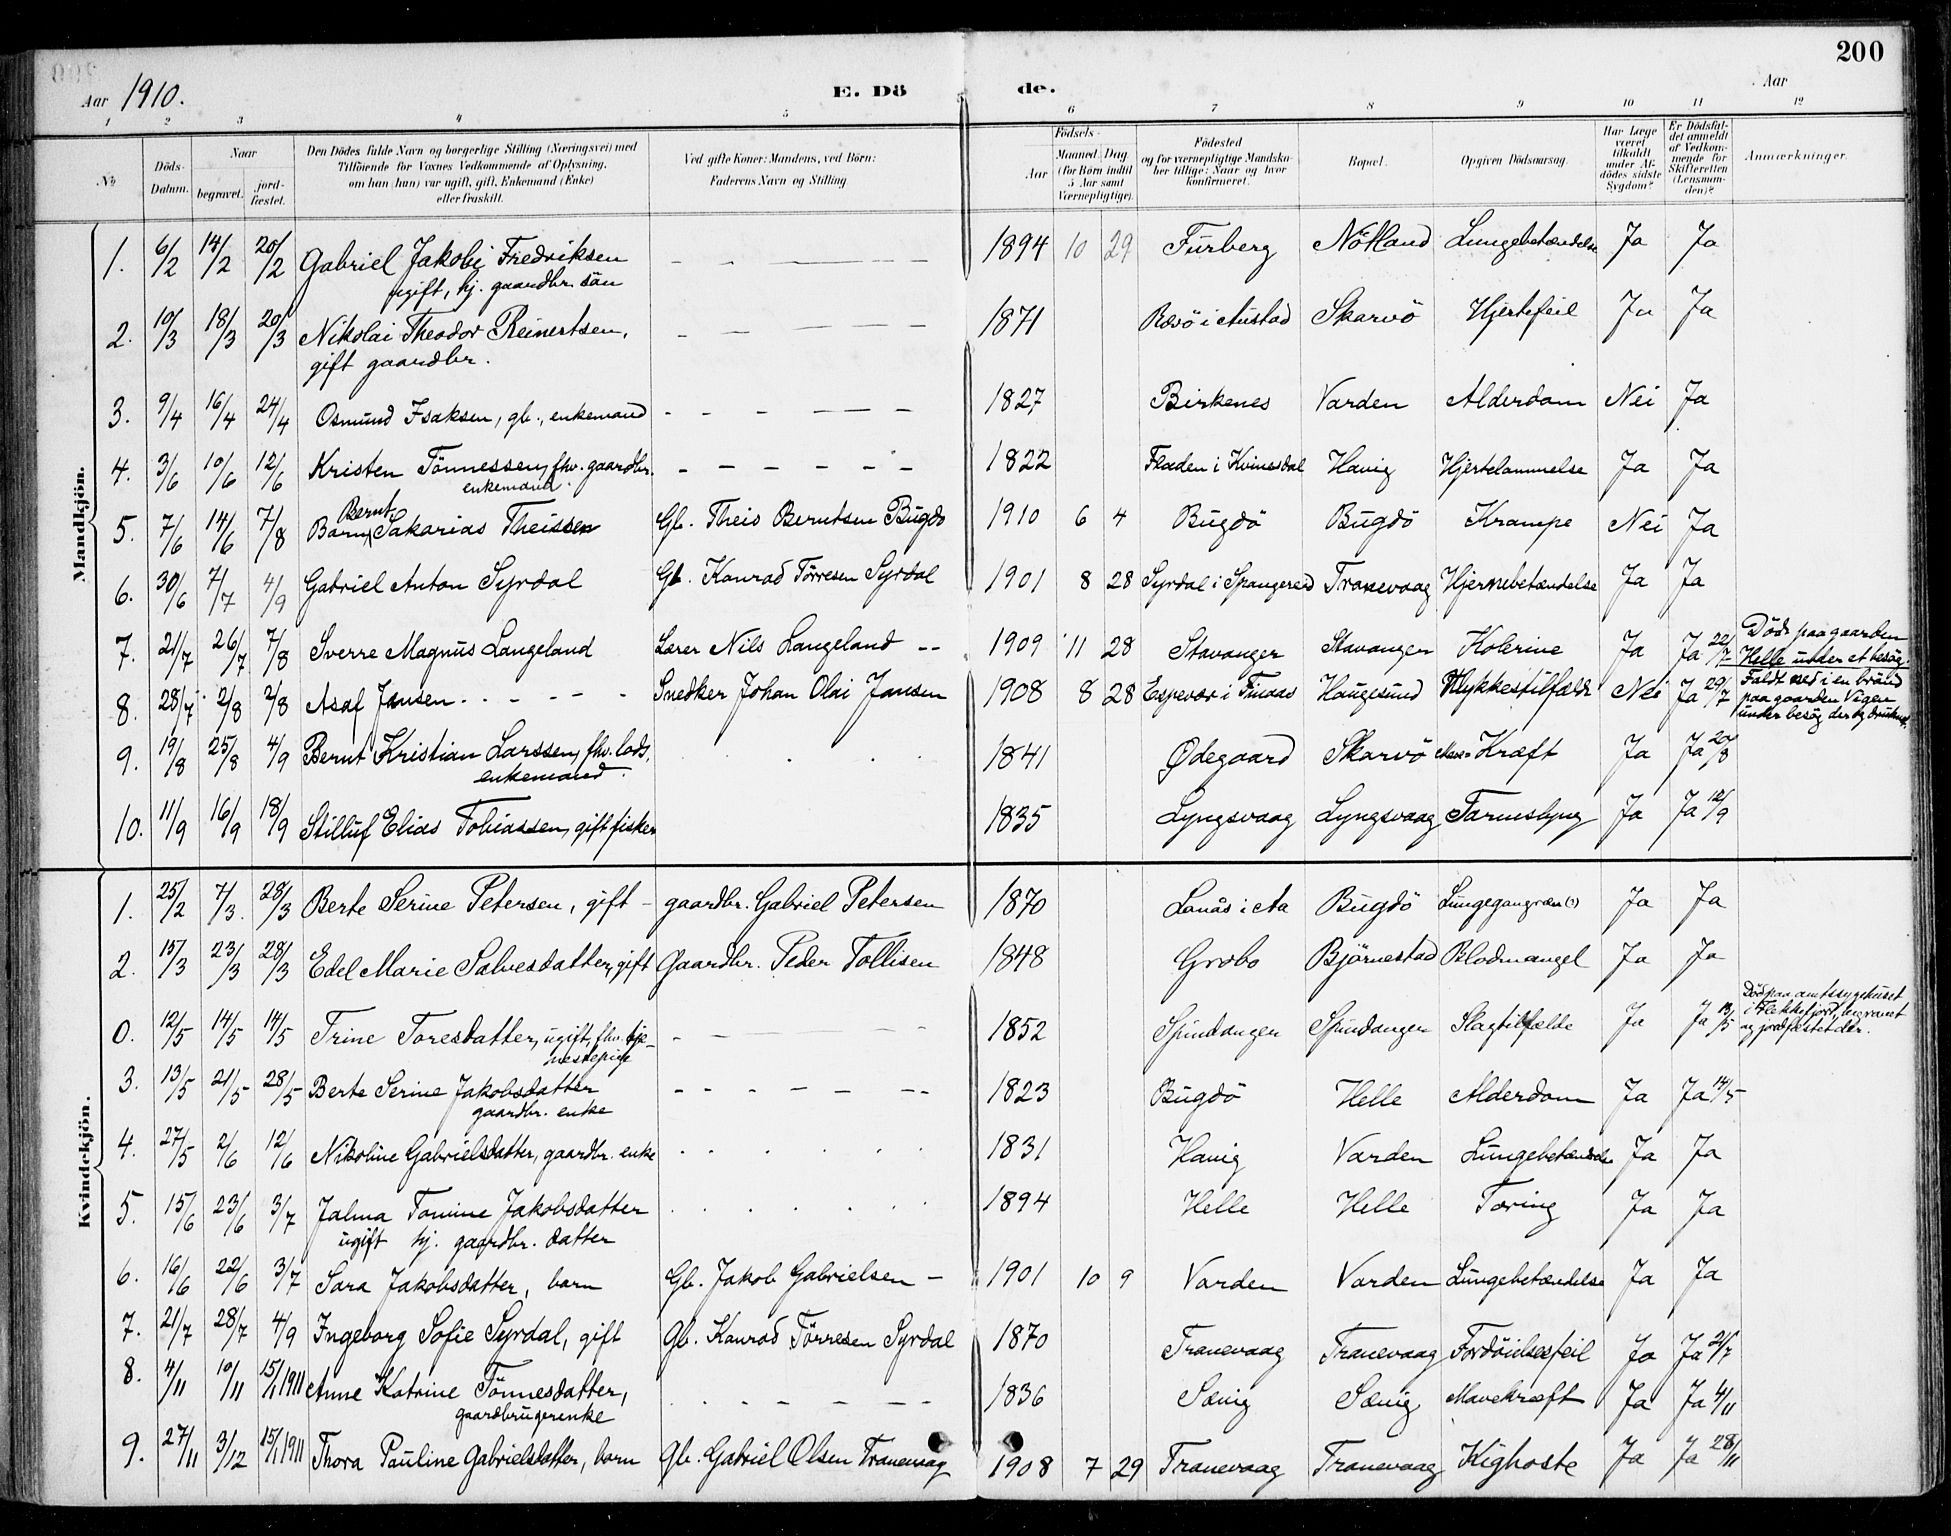 200
Aar 1910. E. Dö de. Aar
1 2 3 4 5 6 7 8 9 10 11 12
No Döds-Datum. Naar begravet. jord-fæstet. Den Dödes fulde Navn og borgerlige Stilling (Næringsvei) med Tilföiende for Voxnes Vedkommende af Oplysning, om han (hun) var ugift, gift, Enkemand (Enke) eller fraskilt. Ved gifte Koner: Mandens, ved Börn: Faderens Navn og Stilling Födsels- Aar Maaned. Dag (for Börn indtil 5 Aar samt Værnepligtige). Födested og for værnepligtige Mandskaber tillige: Naar og hvor konfirmeret. Bopæl. Opgiven Dödsaarsag. Har Læge været tilkaldt under Afdödes sidste Sygdom? Er Dödsfaldet anmeldt af Vedkommende for Skifteretten (Lensmanden)? Anmærkninger.
Mandkjön.
1. 6/2 14/2 20/2 Gabriel Jakobi Fredriksen — — — — — — 1894 10 29 Furberg Nötland Lungebetændelse Ja Ja
ugift, hj. gaardbr. sön
2. 10/3 18/3 20/3 Nikolai Theodor Reinertsen, - — — — 1871 Rævö i Austad Skarvö Hjertefeil Ja Ja
gift gaardbr.
3. 9/4 16/4 24/4 Osmund Isaksen, gb., enkemand - - - — — — 1827 Birkenes Varden Alderdom Nei Ja
4. 3/6 10/6 12/6 Kristen Tönnessen, fhv. gaardbr. - - - - - - 1822 Fladen i Kvinesdal Havig Hjertelammelse Ja Ja
enkemand.
Bernt
5. 7/6 14/6 7/8 Barn Sakarias Theissen Gb. Theis Berntsen Bugdö 1910 6 4 Bugdö Bugdö Krampe Nei Ja
6. 30/6 7/7 4/9 Gabriel Anton Syrdal Gb. Konrad Törresen Syrdal 1901 8 28 Syrdal i Spangereid Tranevaag Hjernebetændelse Ja Ja
7. 21/7 26/7 7/8 Sverre Magnus Langeland Lærer Nils Langeland -- 1909 11 28 Stavanger Stavanger Kolerine Ja Ja 22/7 Döde paa gaarden
Helle under et besög.
8. 28/7 2/8 2/8 Asaf Jansen . . - - - - Snedker Johan Olai Jansen 1908 8 28 Espevær i Finaas Haugesund Ulykkestilfælde Nei Ja 29/7 Faldt ned i en brönd
paa gaarden Vigen
under besög der og druknet.
9. 19/8 25/8 4/9 Bernt Kristian Larssen, fhv. lods, . . . 1841 Ødegaard Skarvö Mave-Kræft Ja Ja 20/8
enkemand.
10. 11/9 16/9 18/9 Stilluf Elias Tobiassen, gift fisker 1835 Lyngsvaag Lyngsvaag Tarmslyng Ja Ja 12/9
Kvindekjön.
1. 25/2 7/3. 28/3 Berte Serine Petersen, gift - gaardbr. Gabriel Petersen 1870 Lanås i Aa Bugdö Lungegangræn (?) Ja Ja
2. 15/3 23/3 28/3 Edel Marie Salvesdatter, gift Gaardbr. Peder Tollisen 1848 Grobo Björnestad Blodmangel Ja Ja
0. 12/5 14/5 14/5 Trine Toresdatter, ugift, fhv. tje- - — — — 1852 Spindangen Spindangen Slagtilfælde Ja Ja 13/5 Död paa amtssygehuset
i Flekkefjord, begravet
og jordfæstet der.
nestepige
3. 13/5 21/5 28/5 Berte Serine Jakobsdatter - - - - - -- 1823 Bugdö Helle Alderdom Ja Ja 14/5
gaardbr. enke
4. 27/5 2/6 12/6 Nikoline Gabrielsdatter, gaardbr. enke . . . . . . 1831 Havig Varden Lungebetændelse Ja Ja
5. 15/6 23/6 3/7 Jalma Tomine Jakobsdatter . . . . . . 1894 Helle Helle Tæring Ja Ja
ugift hj. gaardbr. datter
6. 16/6 22/6 3/7 Sara Jakobsdatter, barn Gb. Jakob Gabrielsen - 1901 10 9 Varden Varden Lungebetændelse Ja Ja
7. 21/7 28/7 4/9 Ingeborg Sofie Syrdal, gift Gb. Konrad Törresen Syrdal 1870 Tranevaag Tranevaag Fordöielsesfeil Ja Ja 21/7
8. 4/11 10/11 15/1 1911 Anne Katrine Tönnesdatter, . . - - - -- 1836 Sævig Sævig Mavekræft Ja Ja 4/11
gaardbrugerenke
9. 27/11 3/12 15/1 1911 Thora Pauline Gabrielsdatter, barn Gb. Gabriel Olsen Tranevaag 1908 7 29 Tranevaag Tranevaag Kighoste Ja Ja 28/11